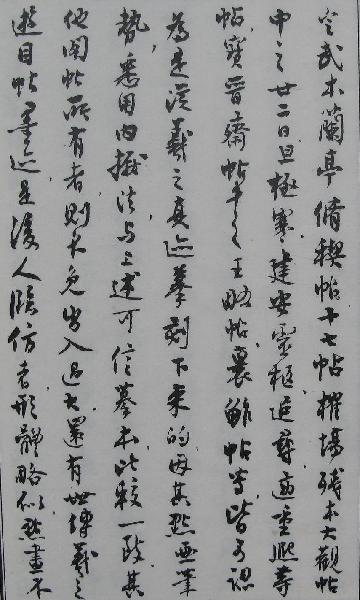 定武本蘭亭脩禊帖十七帖榷場殘本大觀帖
中之廿二日旦極寒建安靈柩追尋適重熙等
帖寶晋齋帖中之王略帖裹鮓帖等皆可認
為是從羲之真迹摹刻下來的因其點畫筆
勢悉用內擫法與上述可信摹本比較一致其
他閣帖所有者則不免出入過大還有世傳羲之
遊目帖墨迹是後人臨仿者形體略似點畫不